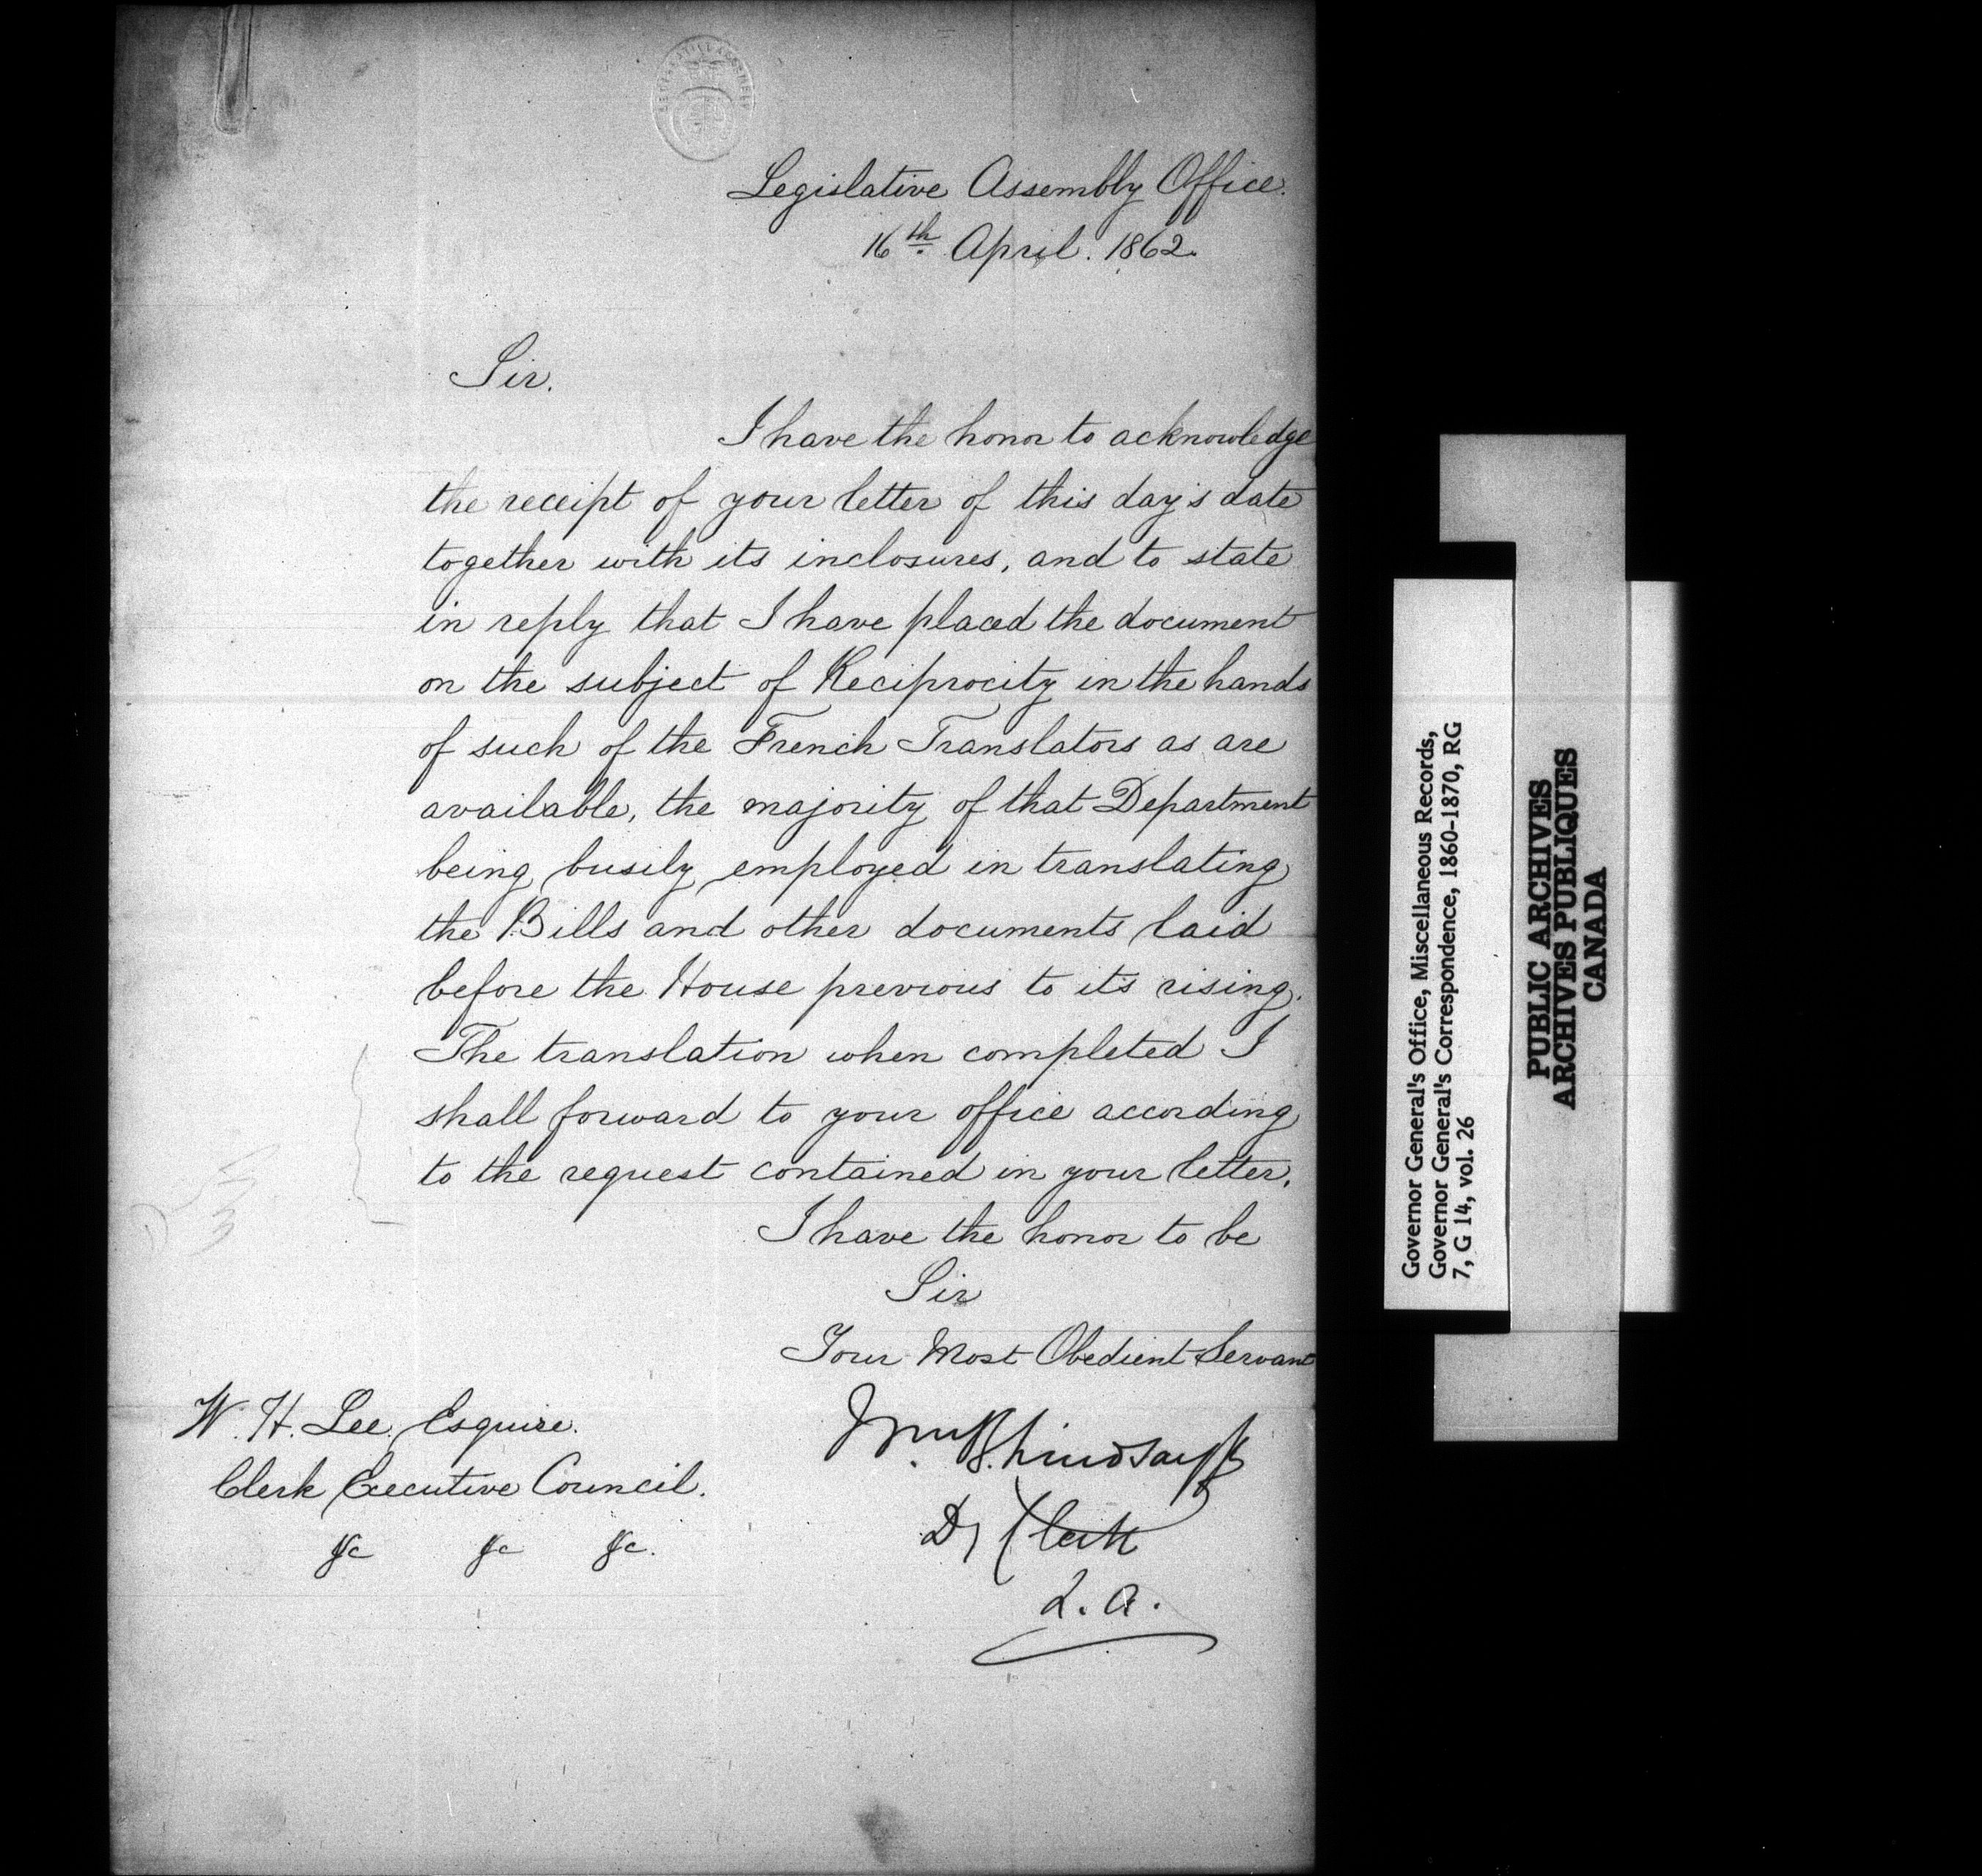 LEGISLATIVE ASSEMBLY
Legislative Assembly Office.
16th April. 1862.
Sir.
I have the honor to acknowledge
the receipt of your letter of this day's date
together with its inclosures, and to state
in reply that I have placed the document
on the subject of Reciprocity in the hands
of such of the French Translators as are
available, the majority of that Department
being busily employed in translating
the Bills and other documents laid
before the House previous to its rising.
The translation when completed I
shall forward to your office according
to the request contained in your letter.
I have the honor to be
Sir
Your Most Obedient Servant
Wm B. Lindsay Jr
Dy Clerk
L. A.
W. H. Lee, Esquire.
Clerk Executive Council.
&c &c &c.
Governor General's Office, Miscellaneous Records,
Governor General's Correspondence, 1860-1870, RG
7, G 14, vol. 26
PUBLIC ARCHIVES
ARCHIVES PUBLIQUES
CANADA